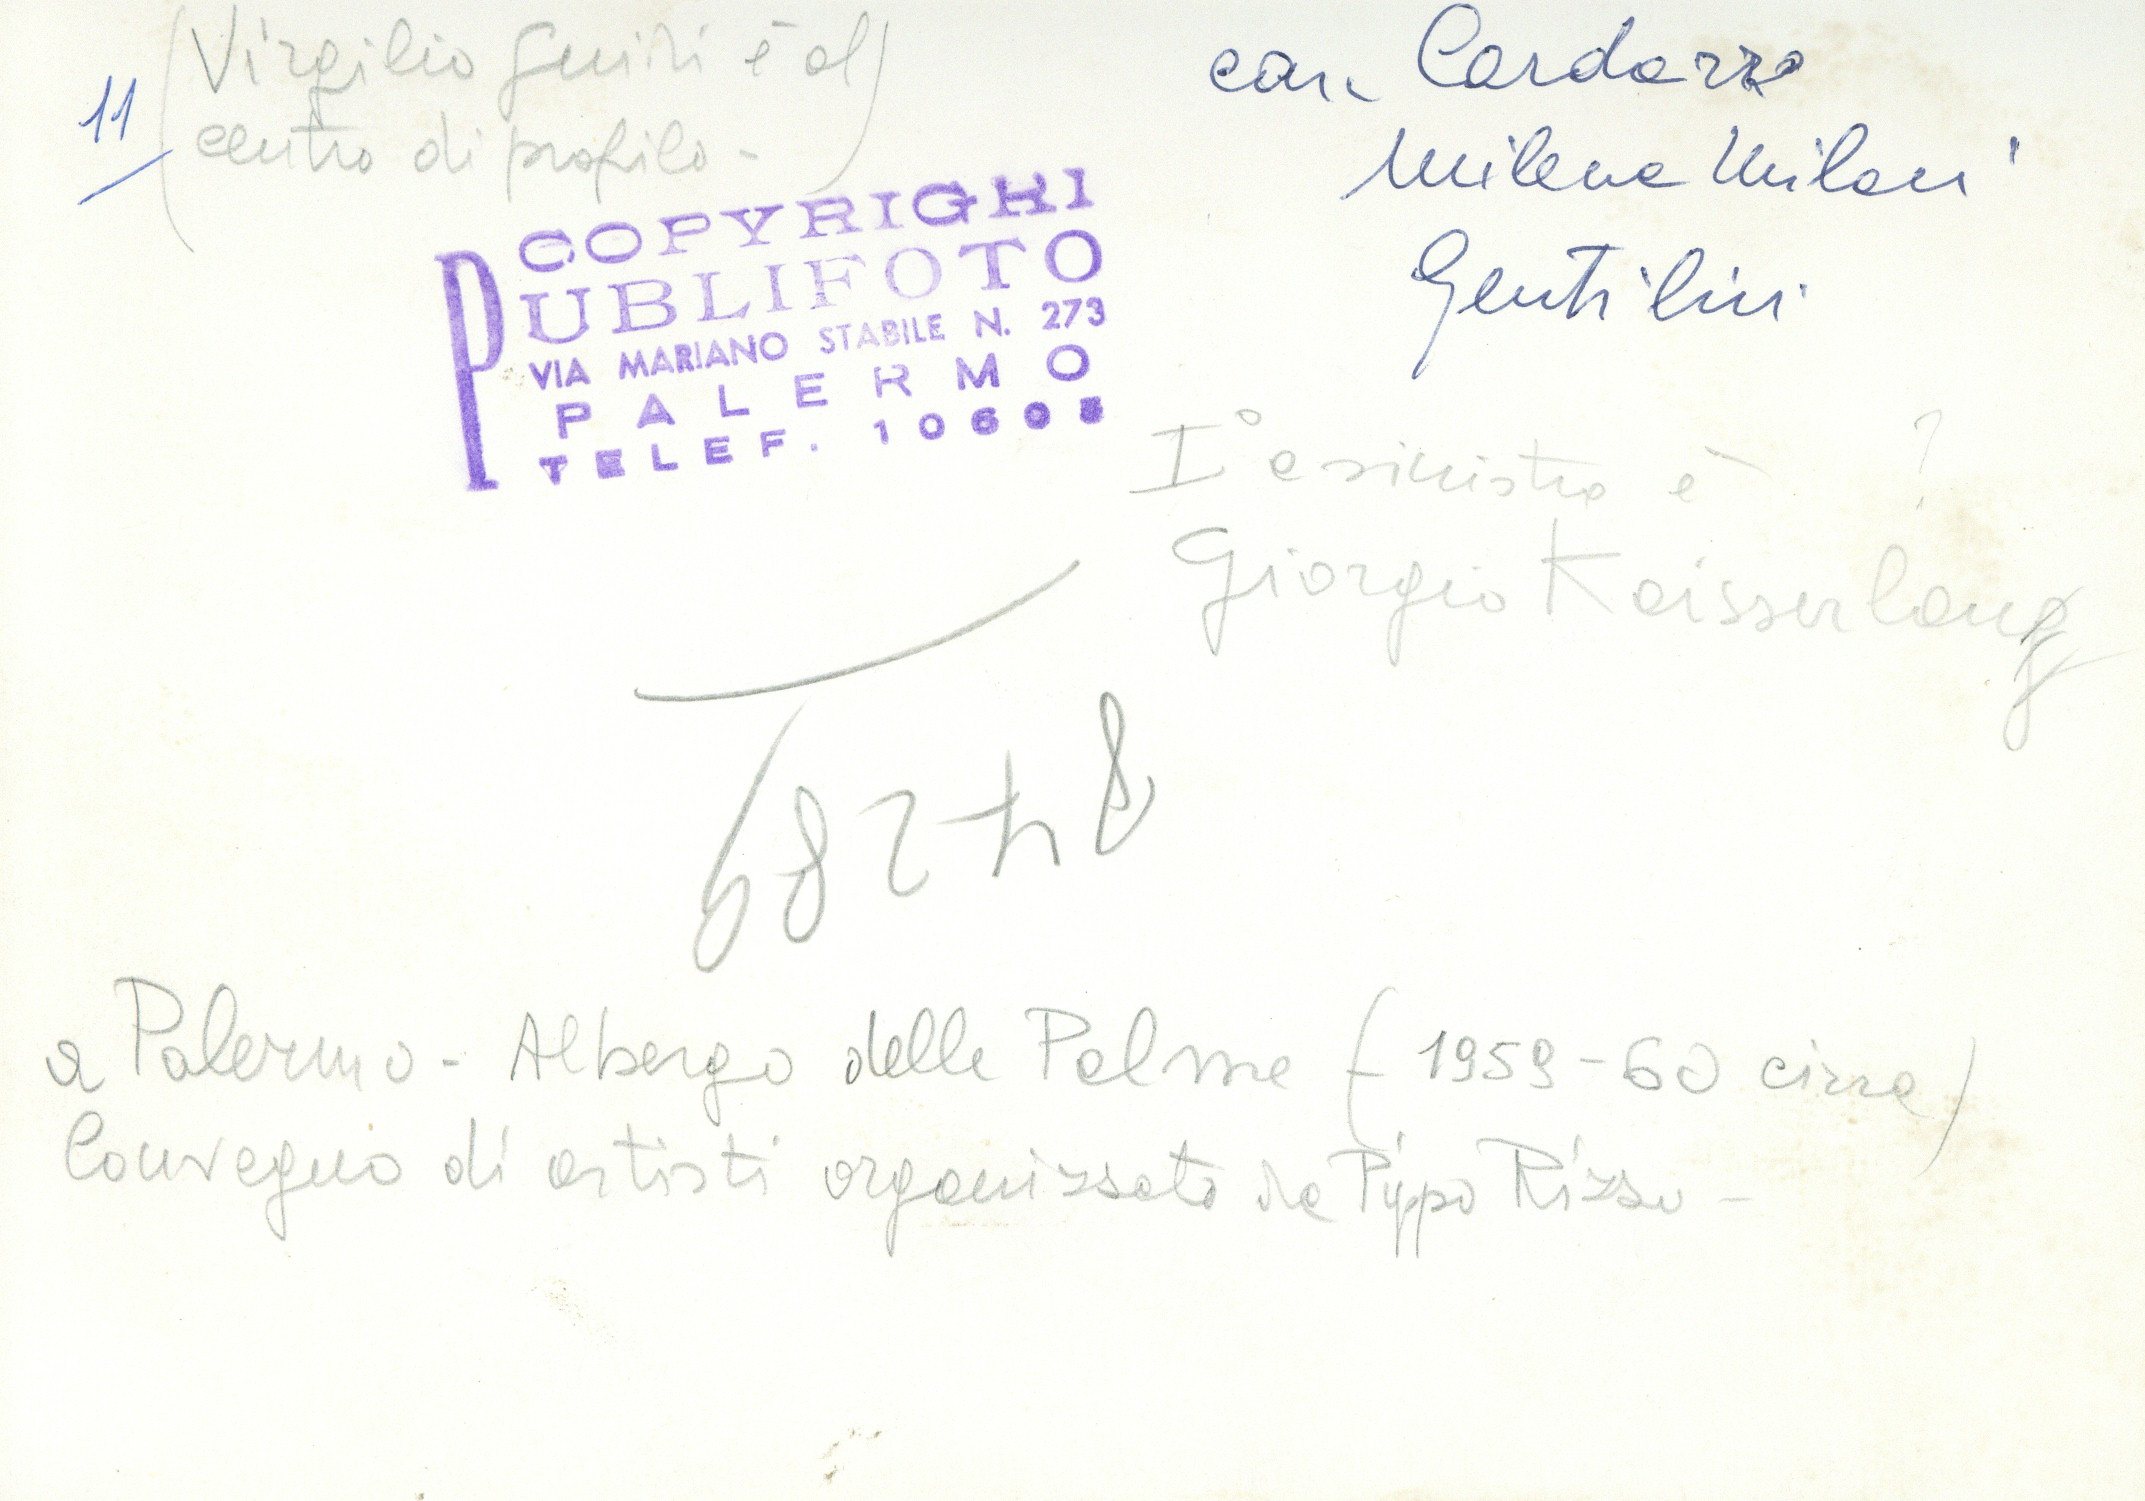 11
(Virgilio Guidi è al
centro di profilo-)
con Cardazzo
Milena Milani
Gentilini
COPYRIGHT
PUBLIFOTO
VIA MARIANO STABILE N. 273
PALERMO
TELEF. 10608
I° a sinistra è ?
Giorgio Kaisserlang
a Palermo - Albergo delle Palme (1959-60 circa)
Convegno di artisti organizzato da Pippo Rizzo -